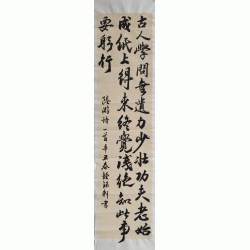 古人學問無遺力少壯功夫老始
成紙上得來終覺淺絕知此事
要躬行
陸游詩一首辛丑春
書